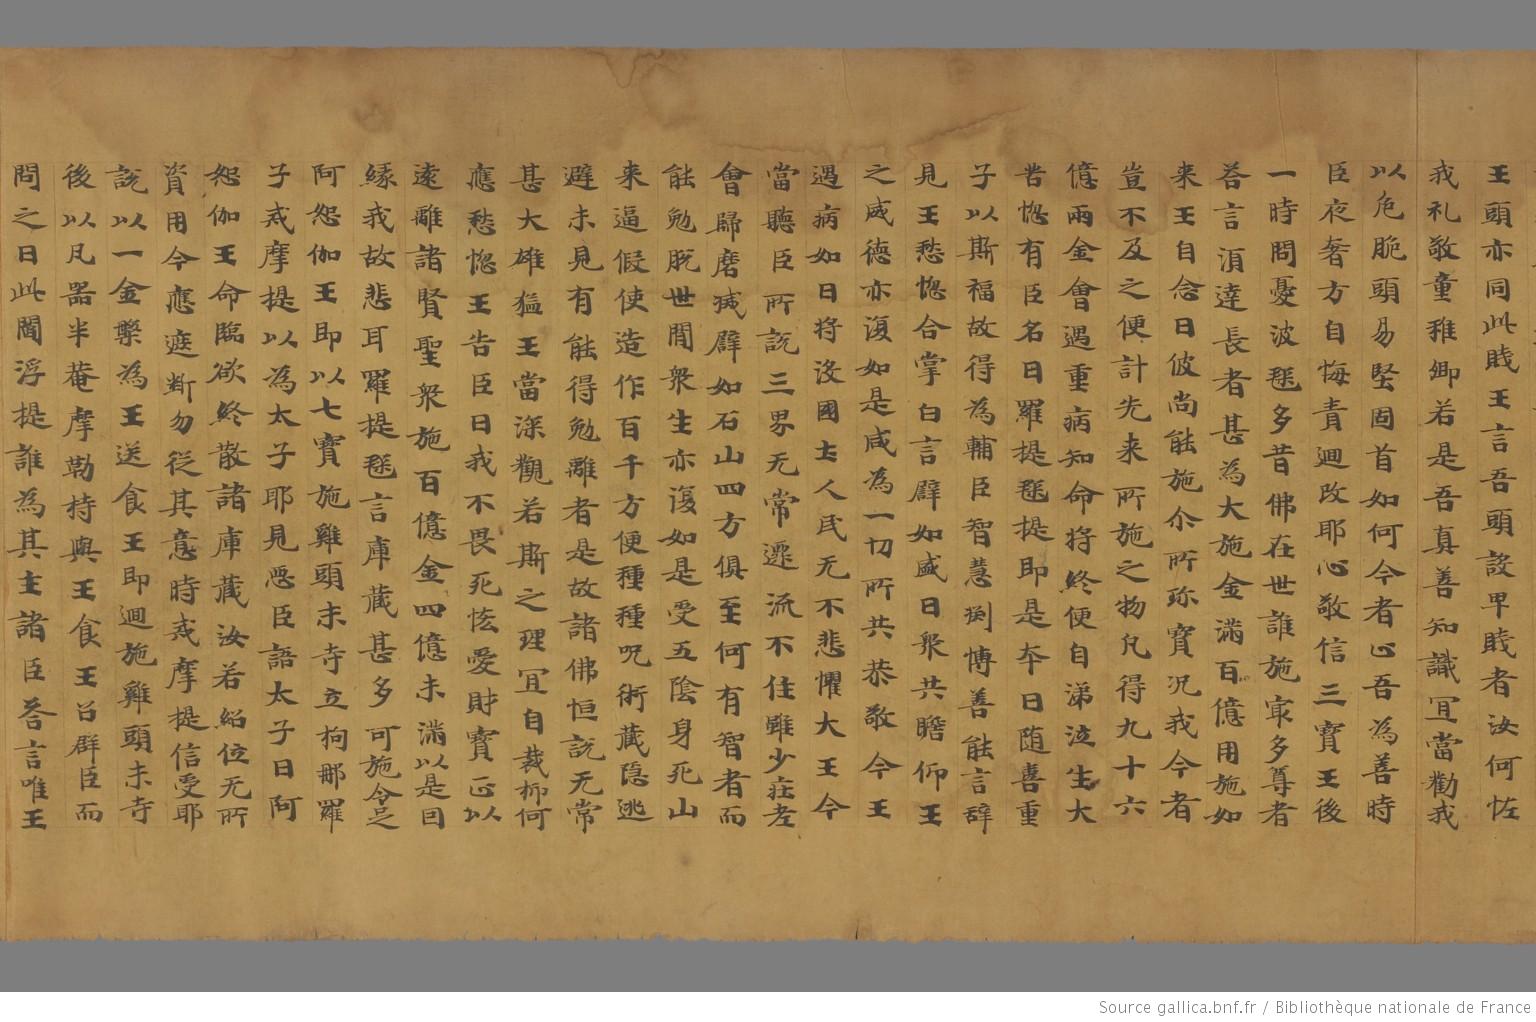 王頭亦同此賤王言吾頭設卑賤者汝何恠
我礼敬童稚卿若是吾真善知識冝當勸我
以危脆頭易堅固首如何今者心吾為善時
臣夜奢方自悔責迴改耶心敬信三寶王後
一時問憂波毱多昔佛在世誰施冣多尊者
荅言湏達長者甚為大施金滿百億用施如
来王自念曰彼尚能施尒所珎寶况我今者
豈不及之便計先来所施之物凡得九十六
億兩金會遇重病知命将終便自涕泣生大
苦惚有臣名曰羅提毱提即是夲日随喜童
子以斯福故得為輔臣智慧捌愽善能言辝
見王愁惚合掌白言辟如盛日衆共瞻仰王
之威德亦復如是咸為一切所共恭敬今王
遇病如日将没國土人民无不悲懼大王今
當聽臣所說三界无常遷流不住雖少壮老
會歸磨滅辟如石山四方俱至何有智者而
能勉脱世間衆生亦復如是受五陰身死山
来逼假使造作百千方便種種呪術藏隐逃
避未見有能得勉離者是故諸佛恒說无常
甚大雄猛王當深觀若斯之理冝自裁抑何
應愁惚王告臣曰我不畏死恡愛財寶正以
遠離諸賢聖衆施百億金四億未滿以是囙
縁我故悲耳羅提毱言庫藏甚多可施令足
阿恕伽王即以七寶施雞頭末寺立拘那羅
子貳摩提以為太子耶見惡臣語太子曰阿
恕伽王命臨欲終散諸庫藏汝若紹位无所
資用今應遮断勿従其意時貳摩提信受耶
說以一金槃為王送食王即迴施雞頭末寺
後以凡器半菴摩勒持與王食王召群臣而
問之曰此閻浮提誰為其主諸臣荅言唯王
Source gallica.bnf.fr / Bibliothèque nationale de France